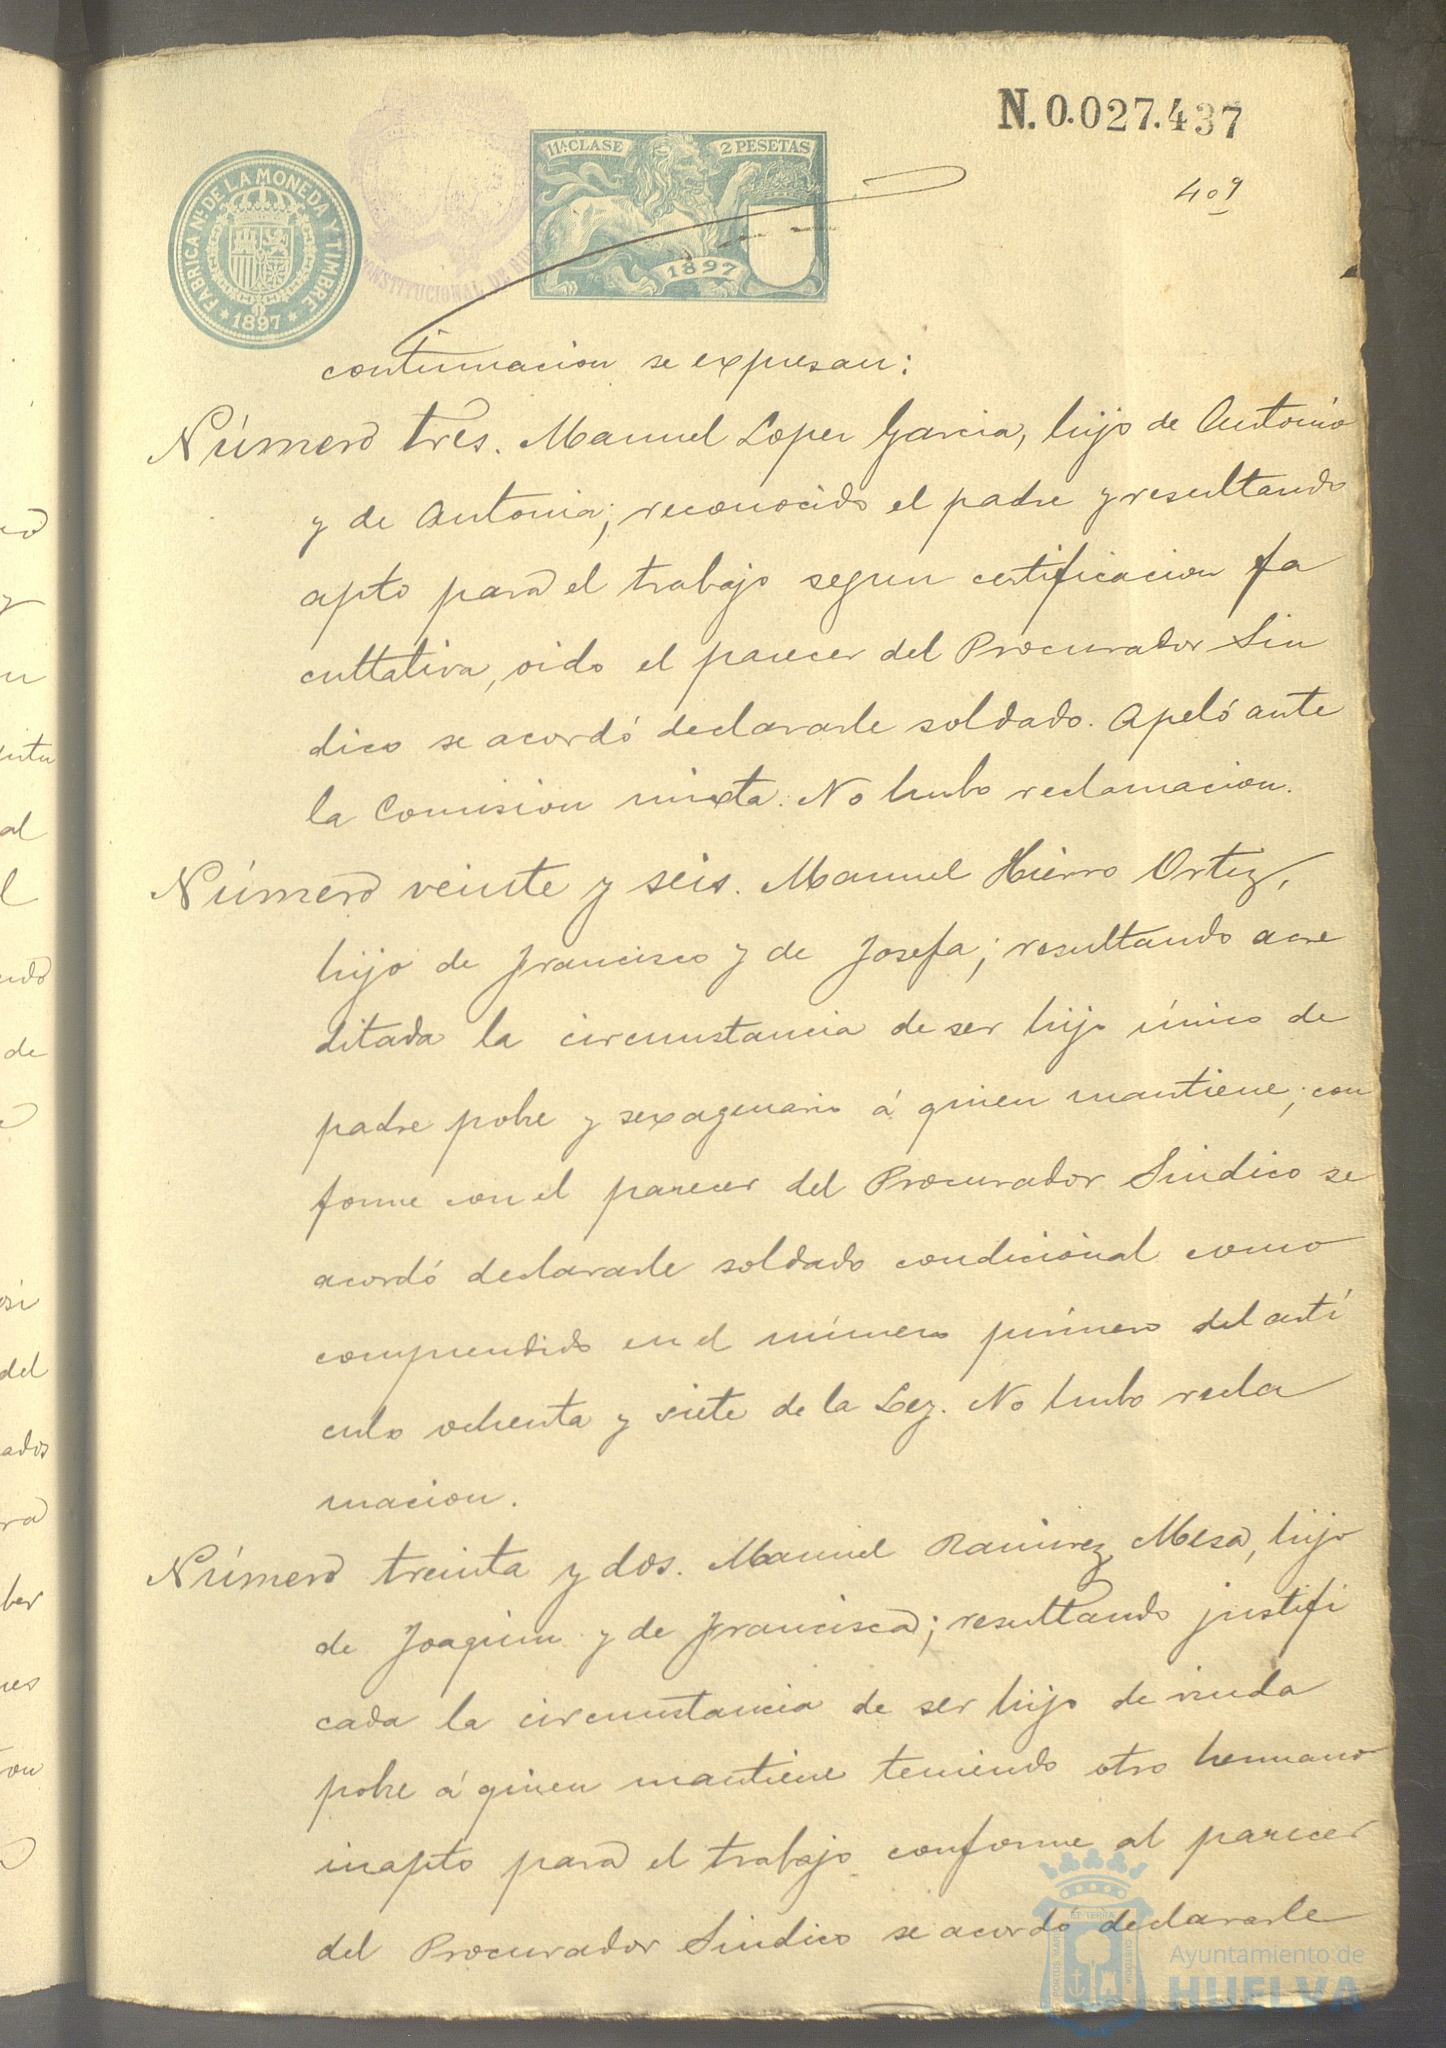 N. 0.027.437
409
FABRICA NL. DE LA MONEDA Y TIMBRE
* 1897 *
CONSTITUCIONAL DE
11ª CLASE
2 PESETAS
1897
continuacion se expresan:
Número tres. Manuel Lopez Garcia, hijo de Antonio
y de Antonia; reconocido el padre y resultando
apto para el trabajo segun certificacion fa
cultativa, oido el parecer del Procurador Sin
dico se acordó declararle soldado. Apeló ante
la Comision mixta. No hubo reclamacion.
Número veinte y seis. Manuel Hierro Ortiz,
hijo de Francisco y de Josefa; resultando acre
ditada la circunstancia de ser hijo único de
padre pobre y sexagenario á quien mantiene; con
forme con el parecer del Procurador Sindico se
acordó declararle soldado condicional como
comprendido en el número primero del artí
culo ochenta y siete de la Ley. No hubo recla
macion.
Número treinta y dos. Manuel Ramirez Mesa, hijo
de Joaquin y de Francisca; resultando justifi
cada la circunstancia de ser hijo de viuda
pobre á quien mantiene teniendo otro hermano
inapto para el trabajo conforme al parecer
del Procurador Sindico se acordo declararle
Ayuntamiento de
HUELVA